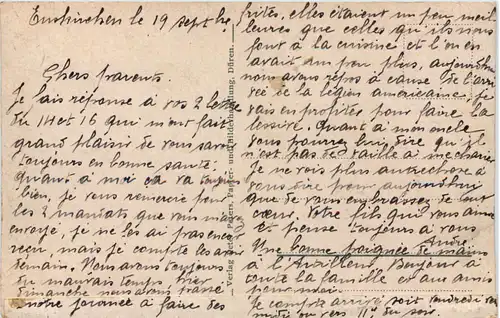 Euskirchen le 19 septbre
Chers parents.
Je fais réponse à vos 2 lettres
du 14 et 16 qui m'ont fait
grand plaisir de vous savoir
toujours en bonne santé.
quant à moi ça va toujours
bien, je vous remercie pour
les 2 mandats que vous m'avez
envoyé, je ne les ai pas encore
reçu, mais je compte les avoir
demain. Nous avons toujours
du mauvais temps, hier
dimanche nous avons passé
notre journée à faire des
Verlag Peters, Papier- und Bilderhandlung, Düren.
frites, elles étaient un peu meil
leures que celles qu'ils nous
font à la cuisine et l'on en
avait un peu plus, aujourd'hui
nous avons repos à cause de l'arri
vée de la légion américaine, je
vais en profiter pour faire la
lessive. Quant à mon oncle
vous pourrez lui dire qu'il
n'est pas de taille à me charier
Je ne vois plus autre chose à
vous dire pour aujourd'hui
que de vous embrasser de tout
cœur. Votre fils qui vous aime
et pense toujours à vous
André
Une bonne poignée de mains
à Bonjour à
toute la famille et aux amis
pour moi.
Je compte arrivé soit vendredi
midi ou vers 11h du soir.